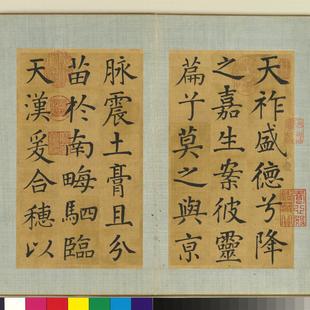 天祚盛德兮降
之嘉生案彼靈
篇兮莫之與亰
脉震土膏且分
苗於南畮駟臨
天漢爰合穗以